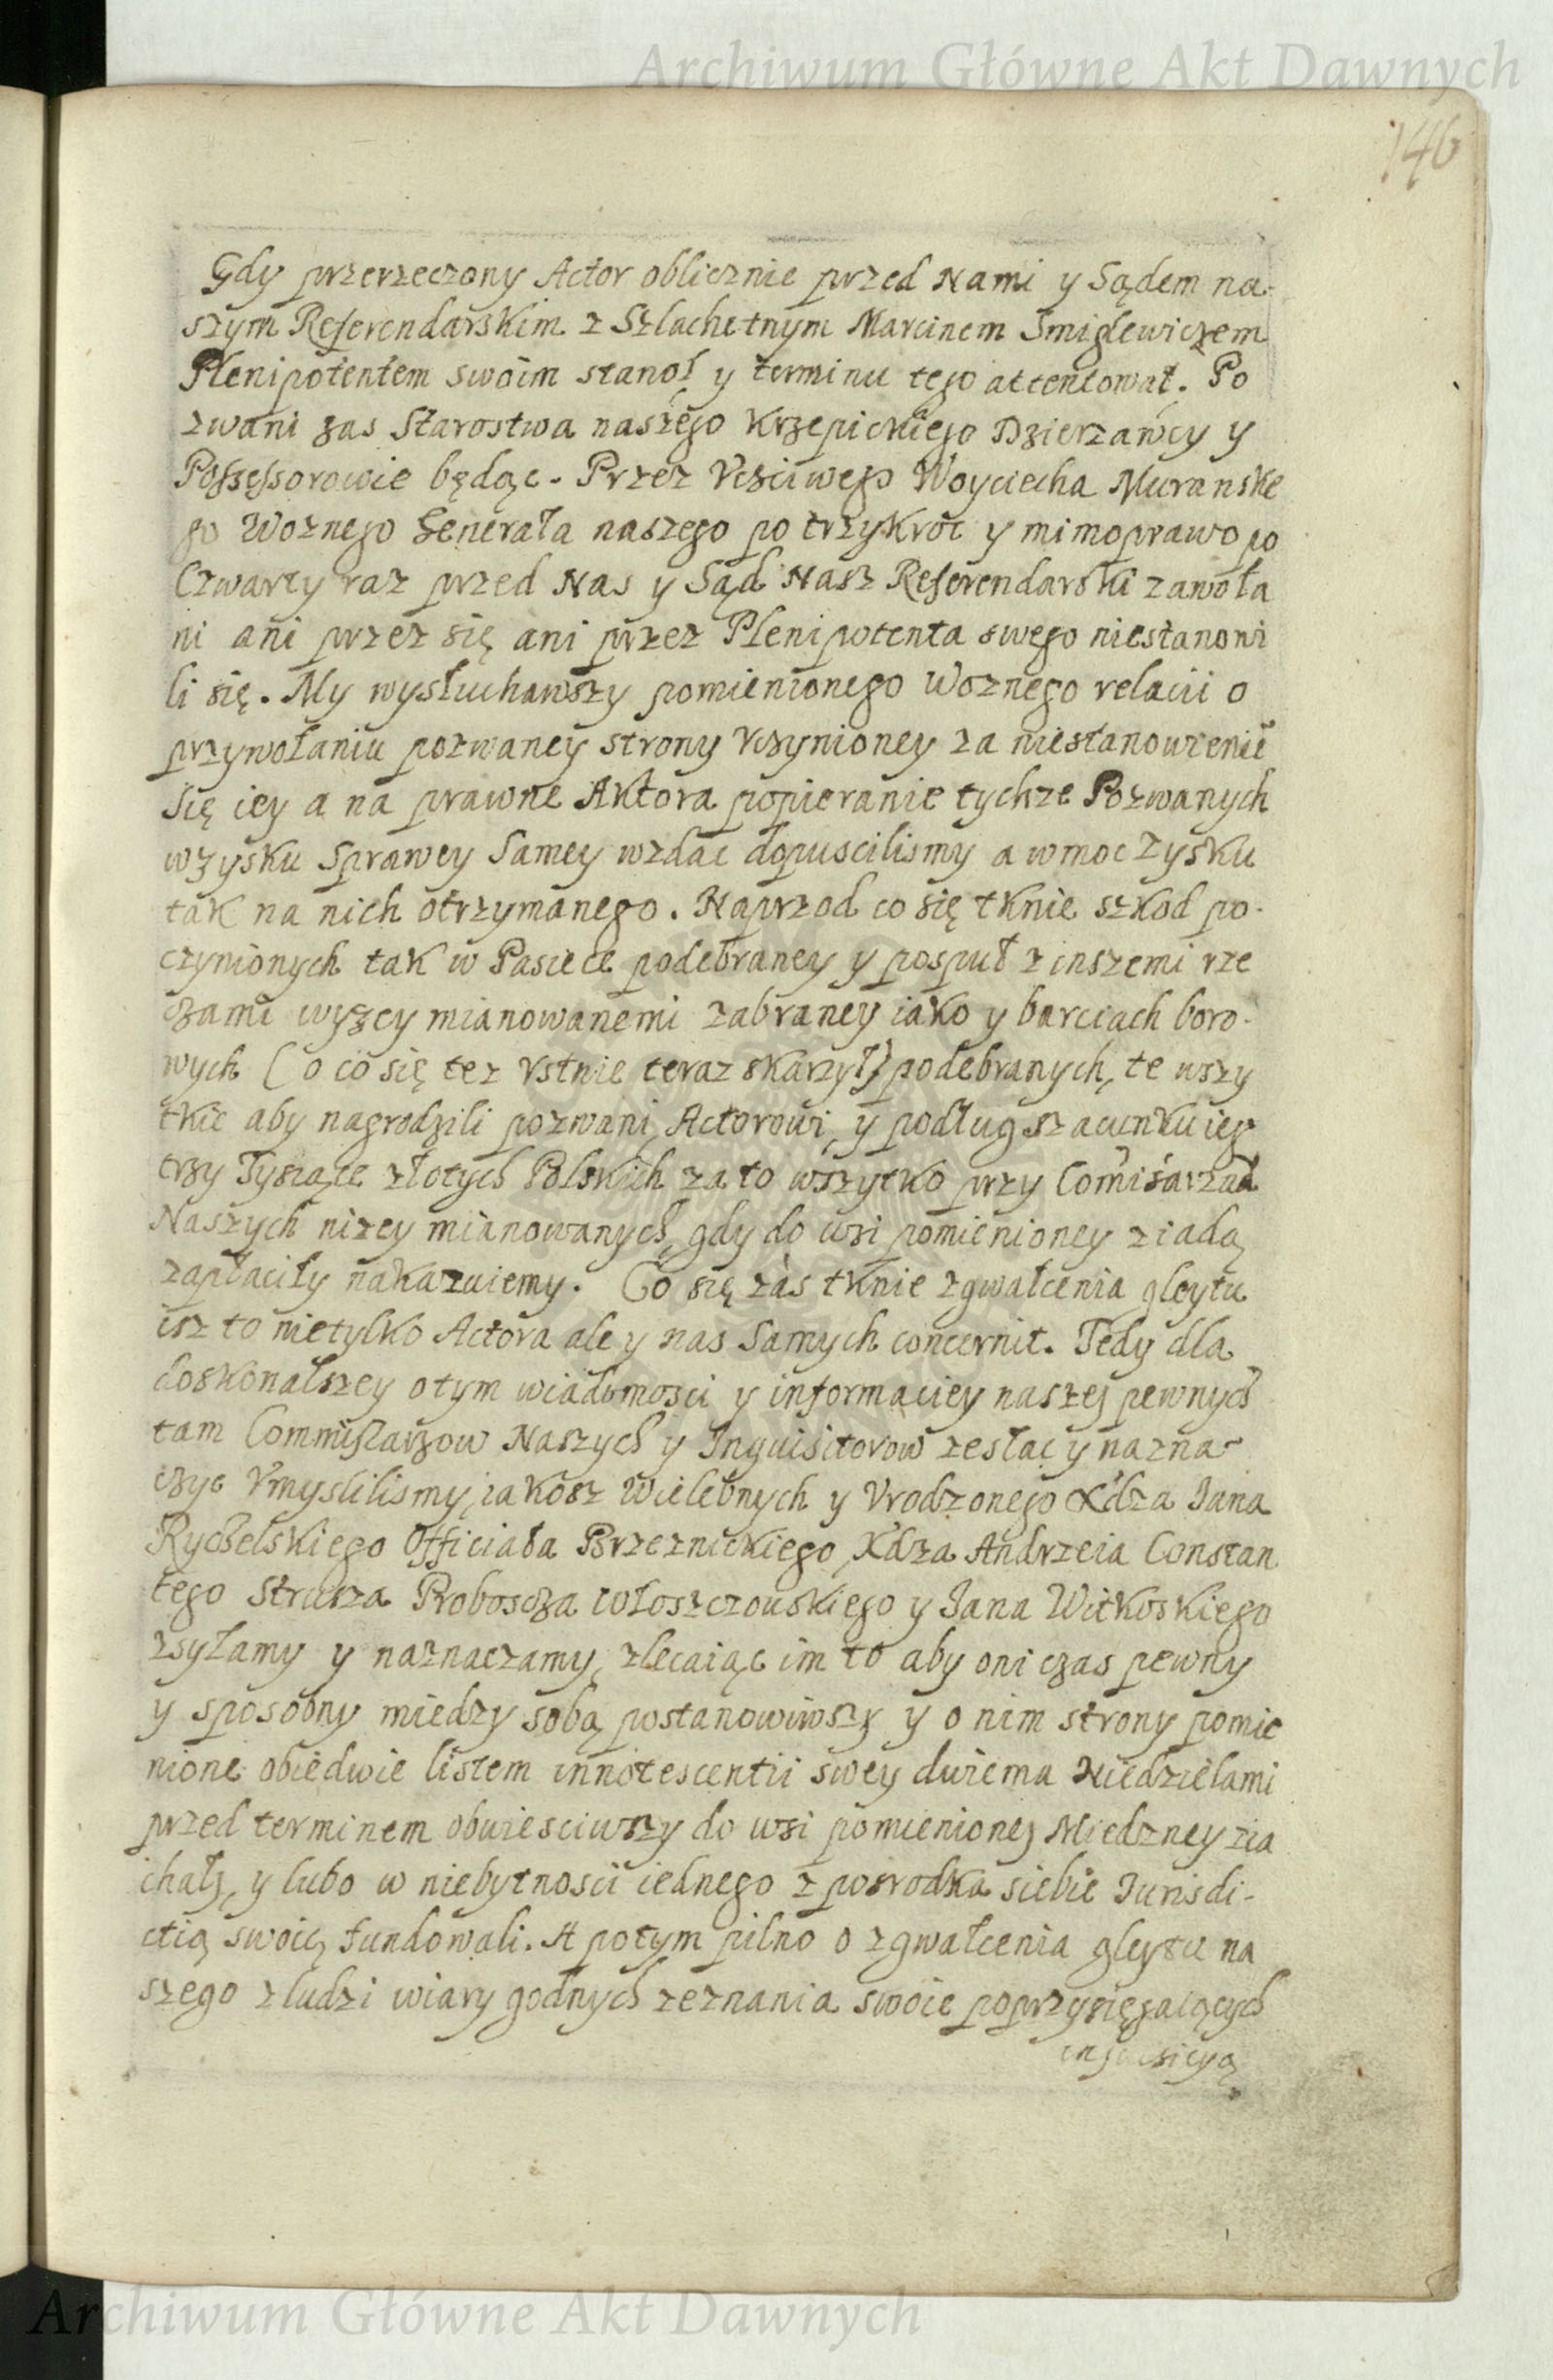 Archiwum Główne Akt Dawnych
146
Gdy przerzeczony Actor oblicznie przed Nami y Sądem na-
szym Referendarskim z Szlachetnym Marcinem Smiglewiczem
Plenipotentem swoim stanoł y terminu tego attentował. Po
zwani zas Starostwa naszego Krzepickiego Dzierzawcy y
Possessorowie będąc. Przez Vcściwego Woyciecha Muranske
go Woznego Generała naszego po trzykroc y mimoprawo po
Czwarty raz przed Nas y Sąd Nasz Referendarski zawoła
ni ani przez się ani przez Plenipotenta swego niestanowi
li się. My wysłuchawszy pomienionego Woznego relacii o
przywołaniu pozwaney strony Vczynioney za niestanowienie
się iey a na prawne Aktora popieranie tychze Pozwanych
wzysku Sprawey Samey wzdac dopuscilismy a wmoc Zysku
tak na nich otrzymanego. Naprzod co się tknie szkod po-
czynionych tak w Pasiece podebraney y pospuł z inszemi rze
czami wyzey mianowanemi zabraney iako y barciach boro-
wych (o co się tez Vstnie teraz skarzył) podebranych, te wszy
tkie aby nagrodzili pozwani Actorowi y podług szacunku ieg
trzy Tysiące złotych Polskich za to wszytko przy Comisarzach
Naszych nizey mianowanych, gdy do wsi pomienioney ziadą
zapłaciły nakazuiemy. Co się zas tknie zgwałcenia gleytu
isz to nietylko Actora ale y nas Samych concernit. Tedy dla
doskonalszey otym wiadomosci y informaciey naszej pewnych
tam Commissarzow Naszych y Inquisitorow zesłac y nazna-
czyc Vmyslilismy, iakosz Wielebnych y Vrodzonego Xdza Jana
Rychelskiego Officiała Brzeznickiego, Xdza Andrzeia Constan
tego Strusza Proboscza Włoszczowskiego y Jana Witkoskiego
zsyłamy y naznaczamy, zlecaiąc im to aby oni czas pewny
y sposobny miedzy sobą postanowiwszy y o nim strony pomie
nione obiedwie listem innotescentii swey dwiema Niedzielami
przed terminem obwiesciwszy do wsi pomienionej Miedzney zia
chały, y lubo w niebytnosci iednego z posrodka siebie Jurisdi-
ctią swoię fundowali. A potym pilno o zgwałcenia gleytu na
szego z ludzi wiary godnych zeznania swoie poprzysięgaiących
Archiwum Główne Akt Dawnych